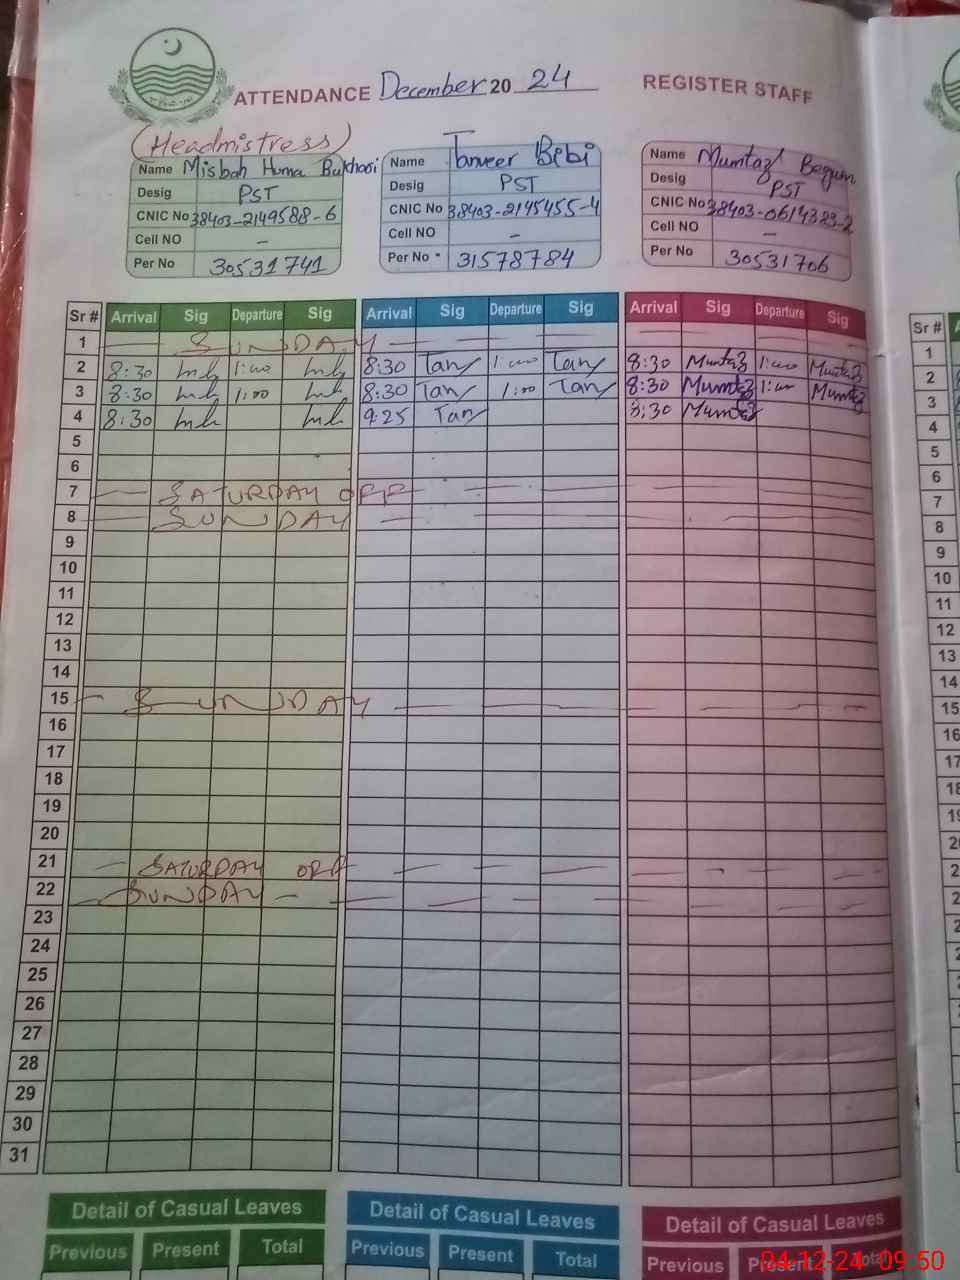 ATTENDANCE December 20 24 REGISTER STAFF
(Headmistress)
Name Misbah Huma Bukhari Name Tanveer Bibi Name Mumtaz Begum
Desig PST Desig PST Desig PST
CNIC No 38403-2149588-6 CNIC No 38403-2145455-4 CNIC No 38403-0614383-2
Cell NO - Cell NO - Cell NO -
Per No 30531741 Per No 31578784 Per No 30531706
Sr # Arrival Sig Departure Sig Arrival Sig Departure Sig Arrival Sig Departure Sig Sr #
1 SUNDAY 1
2 8:30 1:00 8:30 Tan 1:00 Tan 8:30 Mumtaz 1:00 Mumtaz 2
3 8:30 1:00 8:30 Tan 1:00 Tan 8:30 Mumtaz 1:00 Mumtaz 3
4 8:30 9:25 Tan 8:30 Mumtaz 4
5 5
6 6
7 SATURDAY OFF 7
8 SUNDAY 8
9 9
10 10
11 11
12 12
13 13
14 14
15 SUNDAY 15
16 16
17 17
18 18
19
20
21 SATURDAY OFF
22 SUNDAY
23
24
25
26
27
28
29
30
31
Detail of Casual Leaves Detail of Casual Leaves Detail of Casual Leaves
Previous Present Total Previous Present Total Previous Present Total
04-12-24 09:50